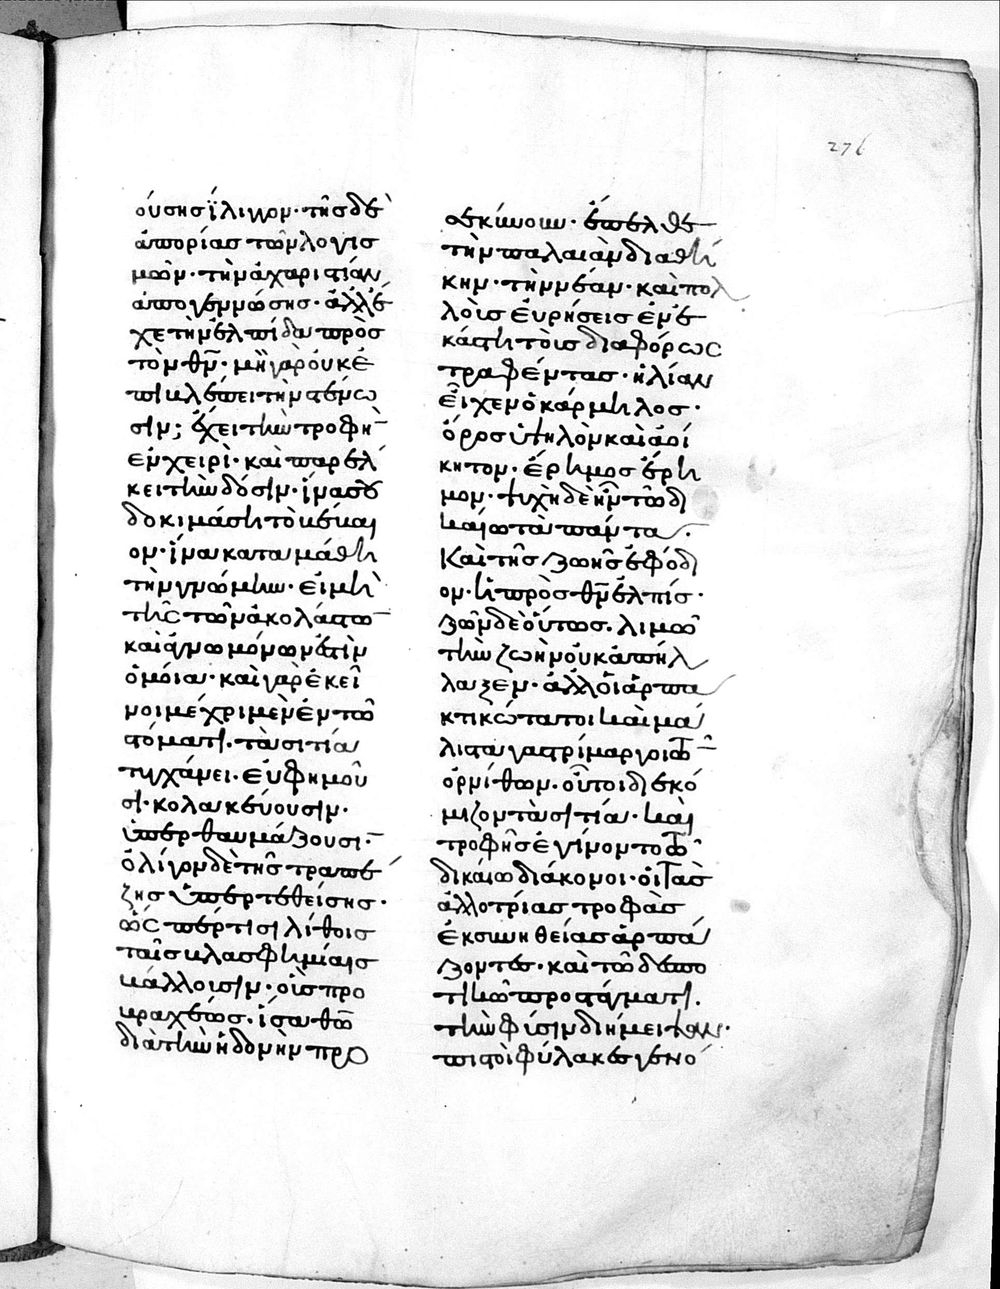 276
ούσησ ἴλιγγον· τῆσ δὲ
ἀπορίασ τῶν λογισ
μῶν· τὴν ἀχαριστίαν
ἀπογεννώσησ· ἀλλ' έ
χε τὴν ἐλπίδα πρὸσ
τὸν θν̅· μὴ γὰρ ὀυκ ἐ
πιβλέπει τὴν στένω
σιν; ἔχει τὴν τροφὴ̅
ἐν χειρὶ· καὶ παρέλ
κει τὴν δόσιν· ἵνα σου
δοκιμάση τὸ βέβαι
ον· ἵνα καταμάθη
τὴν γνώμην· εἰ μὴ
τῆς τῶν ἀκολάστω̅
καὶ ἀγνωμόνων ἐστὶν
ὁμοία· καὶ γὰρ ἐκεῖ
νοι μέχρι μὲν ἐν τῶ
στόματι. τὰ σιτία
τυγχάνει· ἐυφημοῦ
σι· κολακεύουσιν·
ὑπερθαυμάζουσι·̅
ὀλίγον δὲ τῆσ τραπέ
ζησ ὑπερτεθείσησ·
ὥς περ τισὶ λίθοισ
ταῖσ βλασφημίαισ
βάλλουσιν· οἷσ προ
βραχέωσ. ἴσα θῶ
διὰ τὴν ἡδονὴν προ
σεκύνουν· ἔπελθε
τὴν παλαιὰν διαθή
κην· τὴν νέαν· καὶ πολ
λοὺσ ἐυρήσεισ ἐν ἑ
κάστη τούσ διαφόρως
τραφέντασ· ἡλίαν
εἶχεν ὁ κάρμηλοσ·
όροσ ὑψηλὸν καὶ ἀοί
κητον· έρημοσ έρη
μον· ψυχὴ δὲ ἦν τῶ δι
καίω τὰ πάντα.
Καὶ τῆσ ζωῆσ ἐφόδι
ον. ἡ πρὸσ θν̅ ἐλπίσ·
ζῶν δὲ όυτωσ. λιμῶ
τὴν ζωὴν ὀυκ ἀπήλ
λαξεν· ἀλλ' ὁι ἁρπα
κτικώτατοι καὶ μά
λιστα γαστρίμαργοι τῶ̅
ὀρνίθων· οὗτοι διεκό
μιζον τὰ σιτία· καὶ
τροφῆσ ἐγίνοντο τῶ
δικαίω διάκονοι· οἱ τὰσ
ἀλλοτρίασ τροφὰσ
ἐκ συνηθείασ ἁρπά
ζοντεσ· καὶ τῶ δεσπο
τικῶ προστάγματι.
τὴν φύσιν διήμειψαν·
πιστοὶ φύλακεσ γενό